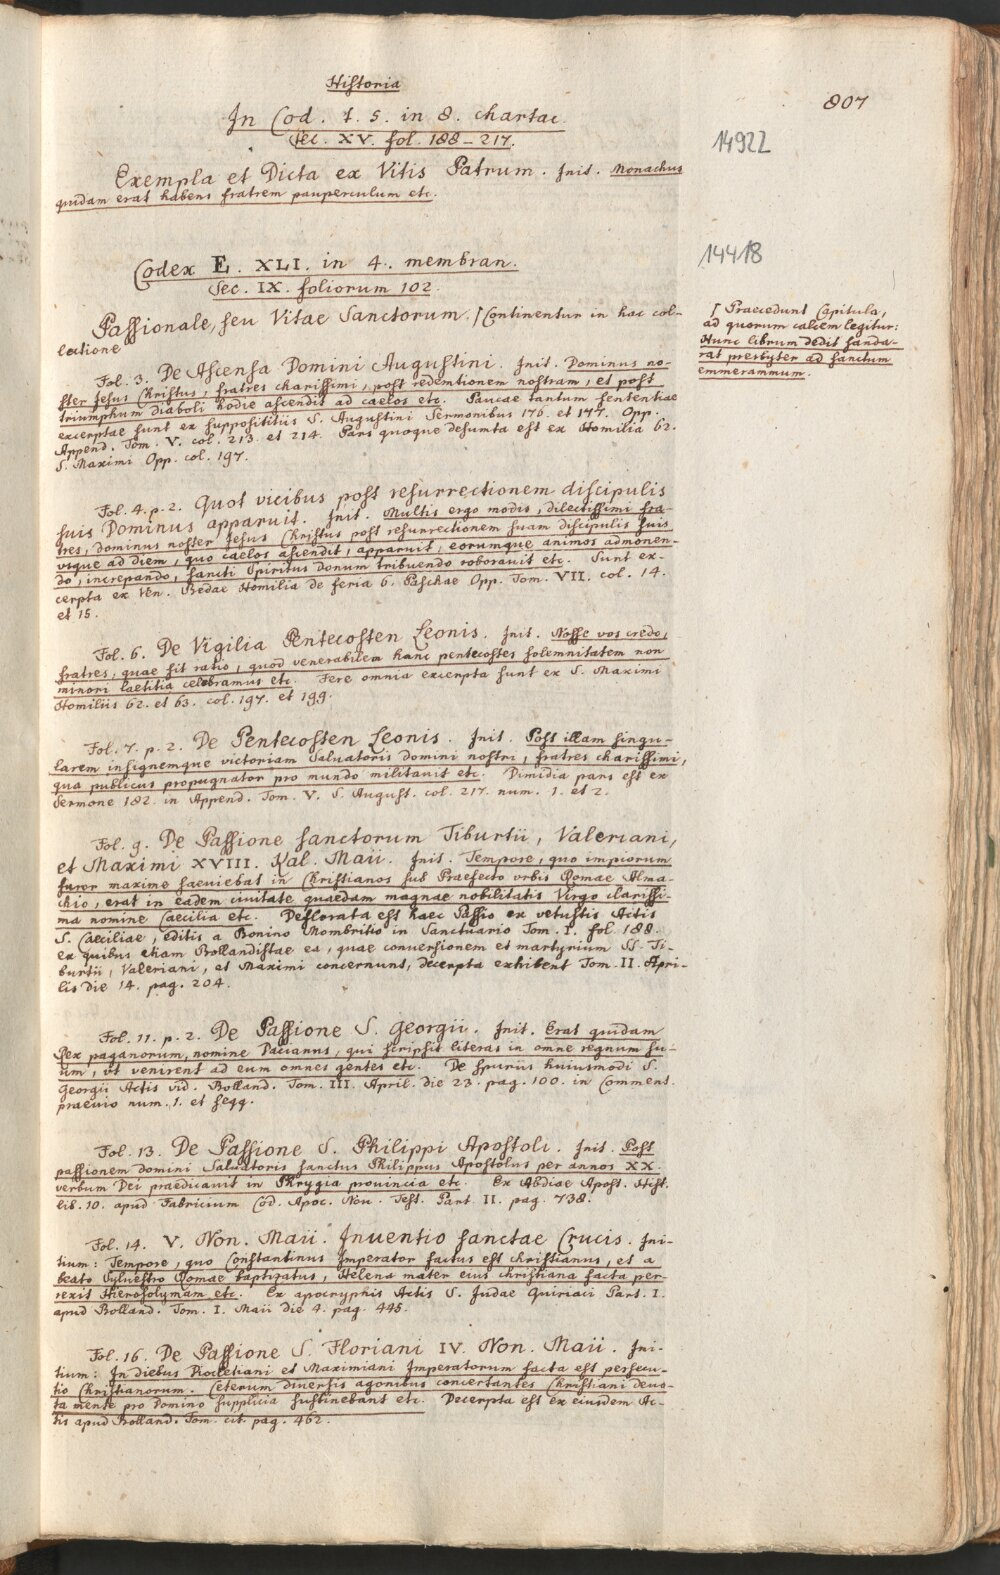 Historia
807
In Cod. t. 5. in 8. chartac.
Sec. XV. fol. 188-217.
14922
Exempla et Dicta ex Vitis Patrum. Init. Monachus
quidam erat habens fratrem pauperculum etc.
14418
Codex E. XLI. in 4. membran.
Sec. IX. foliorum 102.
Paſſionale, ſeu Vitae Sanctorum. ſ Continentur in hac col-
lectione
ſ Praecedunt Capitula,
ad quorum calcem legitur:
Hunc librum dedit ſanda-
rat presbyter ad ſanctum
emmerammum.
Fol. 3. De Aſcenſa Domini Auguſtini. Init. Dominus no-
ſter Jeſus Chriſtus, fratres chariſſimi, poſt redemtionem noſtram, et poſt
triumphum diaboli hodie aſcendit ad caelos etc. Paucae tantum ſententiae
excerptae ſunt ex ſuppoſititiis S. Auguſtini Sermonibus 176. et 177. Opp.
Append. Tom. V. col. 213. et 214. Pars quoque deſumta eſt ex Homilia 62.
S. Maximi Opp. col. 197.
Fol. 4. p. 2. Quot vicibus poſt reſurrectionem diſcipulis
ſuis Dominus apparuit. Init. Multis ergo modis, dilectiſſimi fra-
tres, dominus noſter Jeſus Chriſtus poſt reſurrectionem ſuam diſcipulis ſuis
vsque ad diem, quo caelos aſcendit, apparuit, eorumque animos admonen-
do, increpando, ſancti Spiritus donum tribuendo roborauit etc. Sunt ex-
cerpta ex Ven. Bedae Homilia de feria 6. Paſchae Opp. Tom. VII. col. 14.
et 15.
Fol. 6. De Vigilia Pentecoſten Leonis. Init. Noſſe vos credo,
fratres, quae ſit ratio, quod venerabilem hanc pentecoſtes ſolemnitatem non
minori laetitia celebramus etc. Fere omnia excerpta ſunt ex S. Maximi
Homiliis 62. et 63. col. 197. et 199.
Fol. 7. p. 2. De Pentecoſten Leonis. Init. Poſt illam ſingu-
larem inſignemque victoriam Saluatoris domini noſtri, fratres chariſſimi,
qua publicus propugnator pro mundo militauit etc. Dimidia pars eſt ex
Sermone 182. in Append. Tom. V. S. Auguſt. col. 217. num. 1. et 2.
Fol. 9. De Paſſione ſanctorum Tiburtii, Valeriani,
et Maximi XVIII. Kal. Maii. Init. Tempore, quo impiorum
furor maxime ſaeuiebat in Chriſtianos ſub Praefecto vrbis Romae Alma-
chio, erat in eadem ciuitate quaedam magnae nobilitatis Virgo clariſſi-
ma nomine Caecilia etc. Deflorata eſt haec Paſſio ex vetuſtis Actis
S. Caeciliae, editis a Bonino Mombritio in Sanctuario Tom. I. fol. 188.
ex quibus etiam Bollandiſtae ea, quae conuerſionem et martyrium SS. Ti-
burtii, Valeriani, et Maximi concernunt, decerpta exhibent Tom. II. Apri-
lis die 14. pag. 204.
Fol. 11. p. 2. De Paſſione S. Georgii. Init. Erat quidam
Rex paganorum, nomine Dacianus, qui ſcripſit literas in omne regnum ſu-
um, vt venirent ad eum omnes gentes etc. De ſpuriis huiusmodi S.
Georgii Actis vid. Bolland. Tom. III. April. die 23. pag. 100. in Comment.
praeuio num. 1. et ſeqq.
Fol. 13. De Paſſione S. Philippi Apoſtoli. Init. Poſt
paſſionem domini Saluatoris ſanctus Philippus Apoſtolus per annos XX.
verbum Dei praedicauit in Phrygia prouincia etc. Ex Abdiae Apoſt. Hiſt.
lib. 10. apud Fabricium Cod. Apoc. Nou. Teſt. Part. II. pag. 738.
Fol. 14. V. Non. Maii. Inuentio ſanctae Crucis. Ini-
tium: Tempore, quo Conſtantinus Imperator factus eſt chriſtianus, et a
beato Sylueſtro Romae baptizatus, Helena mater eius chriſtiana facta per-
rexit Hieroſolymam etc. Ex apocryphis Actis S. Judae Quiriaci Part. I.
apud Bolland. Tom. I. Maii die 4. pag. 445.
Fol. 16. De Paſſione S. Floriani IV. Non. Maii. Ini-
tium: In diebus Diocletiani et Maximiani Imperatorum facta eſt perſecu-
tio Chriſtianorum. Ceterum diuerſis agonibus concertantes Chriſtiani deuo-
ta mente pro Domino ſupplicia ſuſtinebant etc. Decerpta eſt ex eiusdem Ac-
tis apud Bolland. Tom. cit. pag. 462.